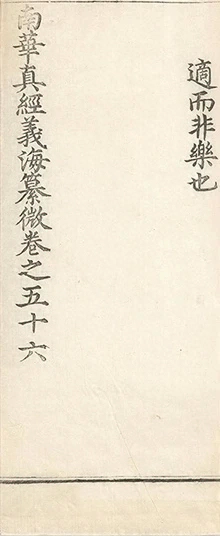 適而非樂也
南華真經義海纂微卷之五十六